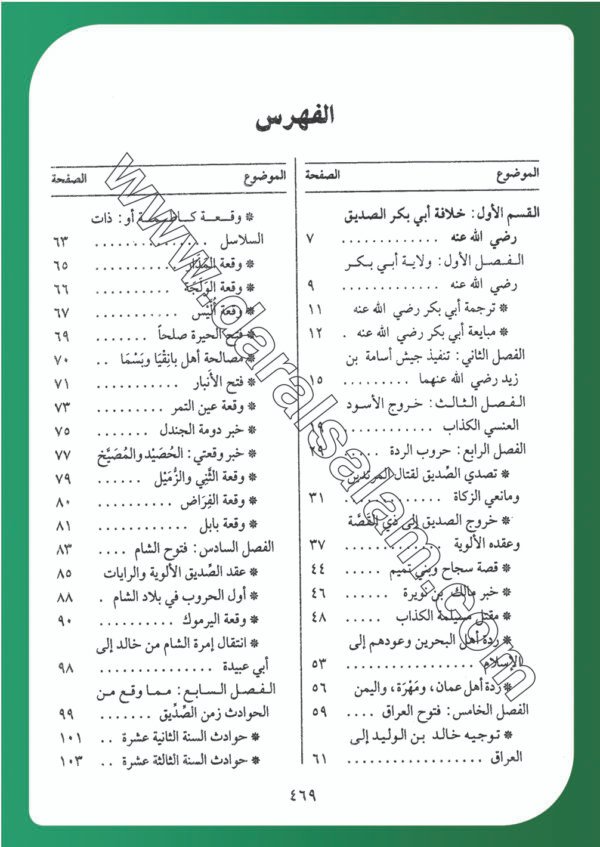 الفهرس
الموضوع الصفحة
القسم الأول: خلافة أبي بكر الصديق
رضي الله عنه ............. ٧
الفصل الأول: ولاية أبي بكر
رضي الله عنه ............. ٩
* ترجمة أبي بكر رضي الله عنه ١١
* مبايعة أبي بكر رضي الله عنه . ١٢
الفصل الثاني: تنفيذ جيش أسامة بن
زيد رضي الله عنهما ........ ١٥
الفصل الثالث: خروج الأسود
العنسي الكذاب ............ ١٩
الفصل الرابع: حروب الردة .... ٢٩
* تصدي الصديق لقتال المرتدين
ومانعي الزكاة ............ ٣١
* خروج الصديق إلى ذي القَصَّة
وعقده الألوية ............ ٣٧
* قصة سجاح وبني تميم ..... ٤٤
* خبر مالك بن نويرة ...... ٤٦
* مقتل مسيلمة الكذاب ..... ٤٨
* ردة أهل البحرين وعودهم إلى
الإسلام ................. ٥٣
* ردة أهل عمان، ومَهْرَة، واليمن ٥٦
الفصل الخامس: فتوح العراق .... ٥٩
* توجيه خالد بن الوليد إلى
العراق .................. ٦١
الموضوع الصفحة
* وقعة كاظمة أو: ذات
السلاسل ............... ٦٣
* وقعة المَذَار ........... ٦٥
* وقعة الوَلَجَة ........... ٦٦
* وقعة أُلَّيْس ............ ٦٧
* فتح الحيرة صلحاً ....... ٦٩
* مصالحة أهل بانِقْيَا وبَسْمَا .. ٧٠
* فتح الأنبار ............ ٧١
* وقعة عين التمر ......... ٧٣
* خبر دومة الجندل ........ ٧٥
* خبر وقعتي: الحُصَيْد والمُصَيَّخ ٧٧
* وقعة الثَّنِي والزُّمَيْل ...... ٧٩
* وقعة الفِرَاض ........... ٨٠
* وقعة بابل ............. ٨١
الفصل السادس: فتوح الشام .... ٨٣
* عقد الصِّديق الألوية والرايات ٨٥
* أول الحروب في بلاد الشام . ٨٨
* وقعة اليرموك ........... ٩٠
* انتقال إمرة الشام من خالد إلى
أبي عبيدة ............... ٩٨
الفصل السابع: مما وقع من
الحوادث زمن الصِّدِّيق ........ ٩٩
* حوادث السنة الثانية عشرة .. ١٠١
* حوادث السنة الثالثة عشرة .. ١٠٣
٤٦٩
www.daralsalam.com